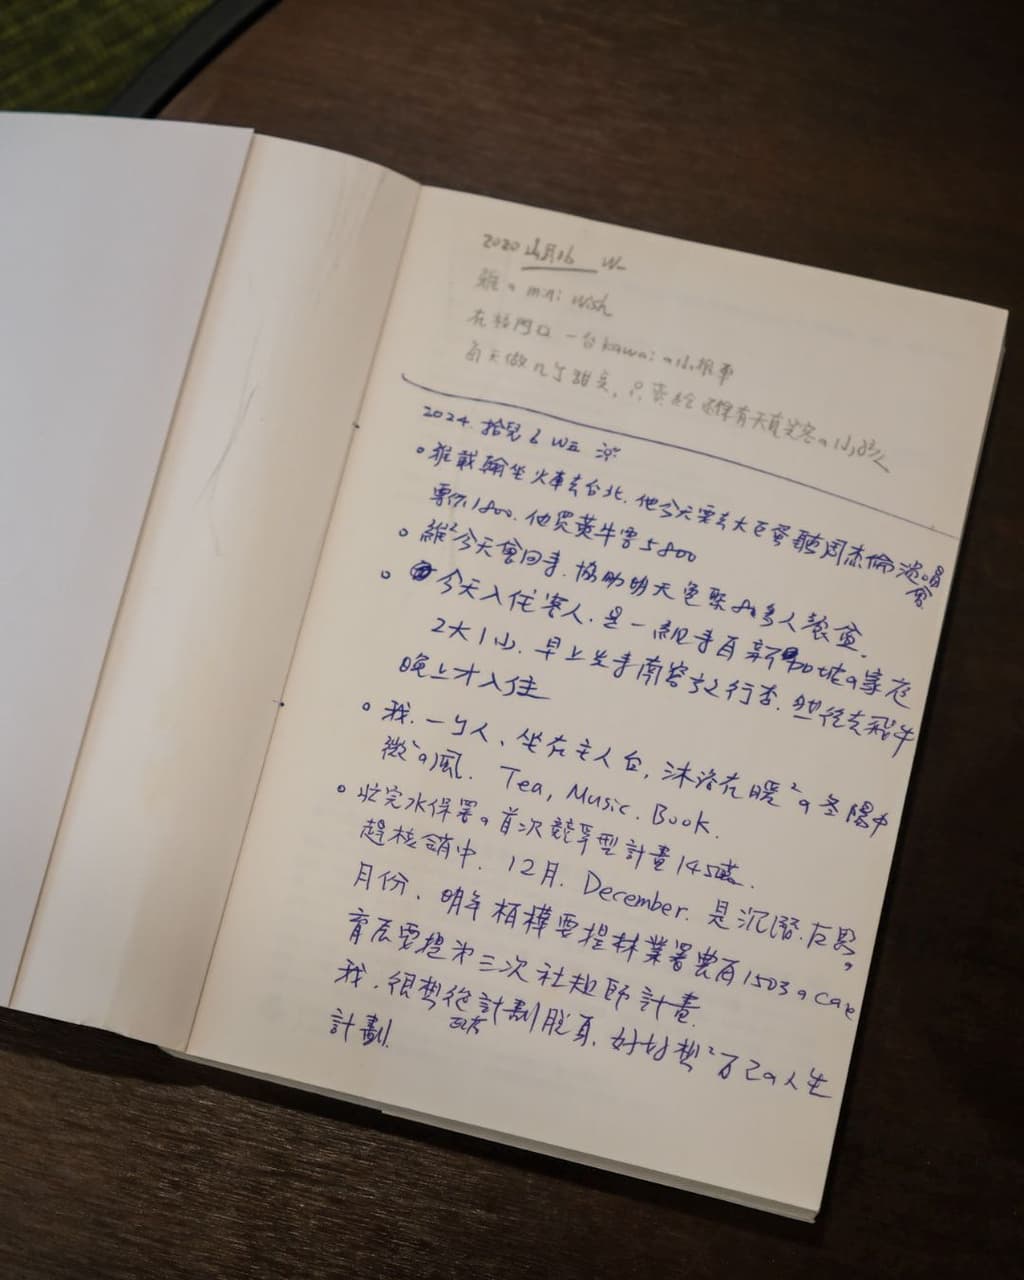 2020 4月16 W
雅a mini wish
在 門口 一台kawaii a小 車
每天做几ㄎ甜 , 只賣給 有天真 a小
2024. 拾 6 W五
• 載翰坐火車去台北. 他今天要去大巨蛋聽周杰倫演唱會
票价1800. 他買黃牛票5800
• 維²今天會回 . 協助明天 80多人餐盒.
• 今天入住客人. 是一組 自新加坡a家庭
2大1小. 早上 行李. 然後去
晚上才入住
• 我. 一ㄎ人、坐在主人台, 沐浴在暖²a冬陽中
微²a風. Tea, Music. Book.
• 忙完水保署a首次競爭型計畫145萬.
趕核銷中. 12月. December. 是沉潛.反思,
月份. 明年栢樺要提林業署農 1503 a case
育辰要提第三次社 師計畫.
我. 很想從計劃脫 . 好好想²自己a人生
計劃.